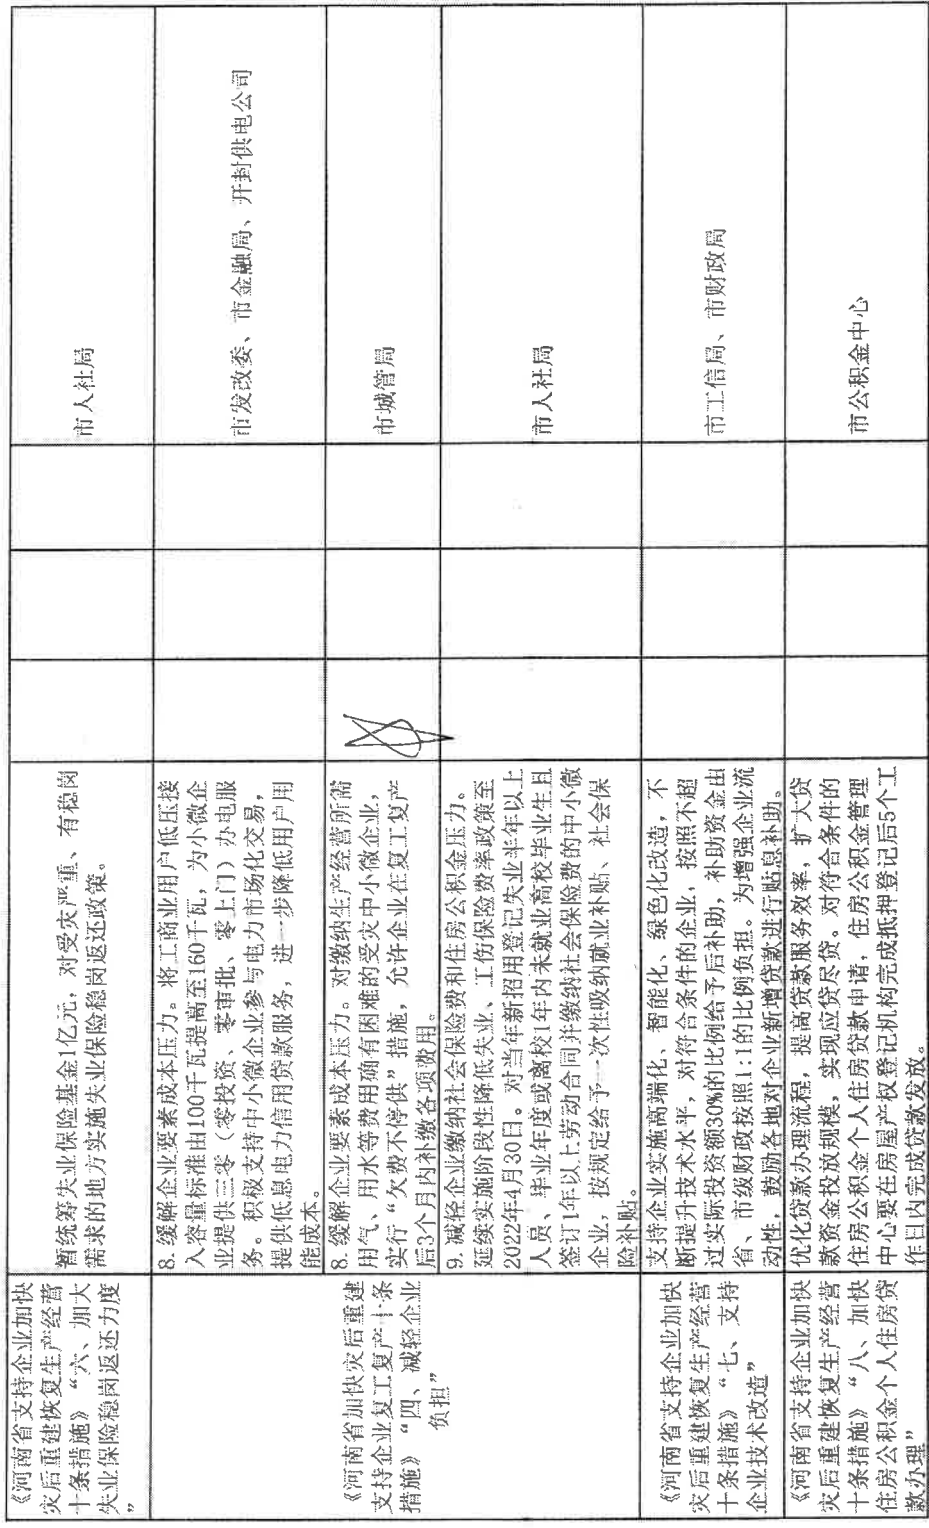 《河南省支持企业加快
灾后重建恢复生产经营
十条措施》“六、加大
失业保险稳岗返还力度
”
暂统筹失业保险基金1亿元，对受灾严重、有稳岗
需求的地方实施失业保险稳岗返还政策。
市人社局
《河南省加快灾后重建
支持企业复工复产十条
措施》“四、减轻企业
负担”
8.缓解企业要素成本压力。将工商业用户低压接
入容量标准由100千瓦提高至160千瓦，为小微企
业提供三零（零投资、零审批、零上门）办电服
务。积极支持中小微企业参与电力市场化交易，
提供低息电力信用贷款服务，进一步降低用户用
能成本。
市发改委、市金融局、开封供电公司
8.缓解企业要素成本压力。对缴纳生产经营所需
用气、用水等费用确有困难的受灾中小微企业，
实行“欠费不停供”措施，允许企业在复工复产
后3个月内补缴各项费用。
市城管局
9.减轻企业缴纳社会保险费和住房公积金压力。
延续实施阶段性降低失业、工伤保险费率政策至
2022年4月30日。对当年新招用登记失业半年以上
人员、毕业年度或离校1年内未就业高校毕业生且
签订1年以上劳动合同并缴纳社会保险费的中小微
企业，按规定给予一次性吸纳就业补贴、社会保
险补贴。
市人社局
《河南省支持企业加快
灾后重建恢复生产经营
十条措施》“七、支持
企业技术改造”
支持企业实施高端化、智能化、绿色化改造，不
断提升技术水平，对符合条件的企业，按照不超
过实际投资额30%的比例给予后补助，补助资金由
省、市级财政按照1:1的比例负担。为增强企业流
动性，鼓励各地对企业新增贷款进行贴息补助。
市工信局、市财政局
《河南省支持企业加快
灾后重建恢复生产经营
十条措施》“八、加快
住房公积金个人住房贷
款办理”
优化贷款办理流程，提高贷款服务效率，扩大贷
款资金投放规模，实现应贷尽贷。对符合条件的
住房公积金个人住房贷款申请，住房公积金管理
中心要在房屋产权登记机构完成抵押登记后5个工
作日内完成贷款发放。
市公积金中心